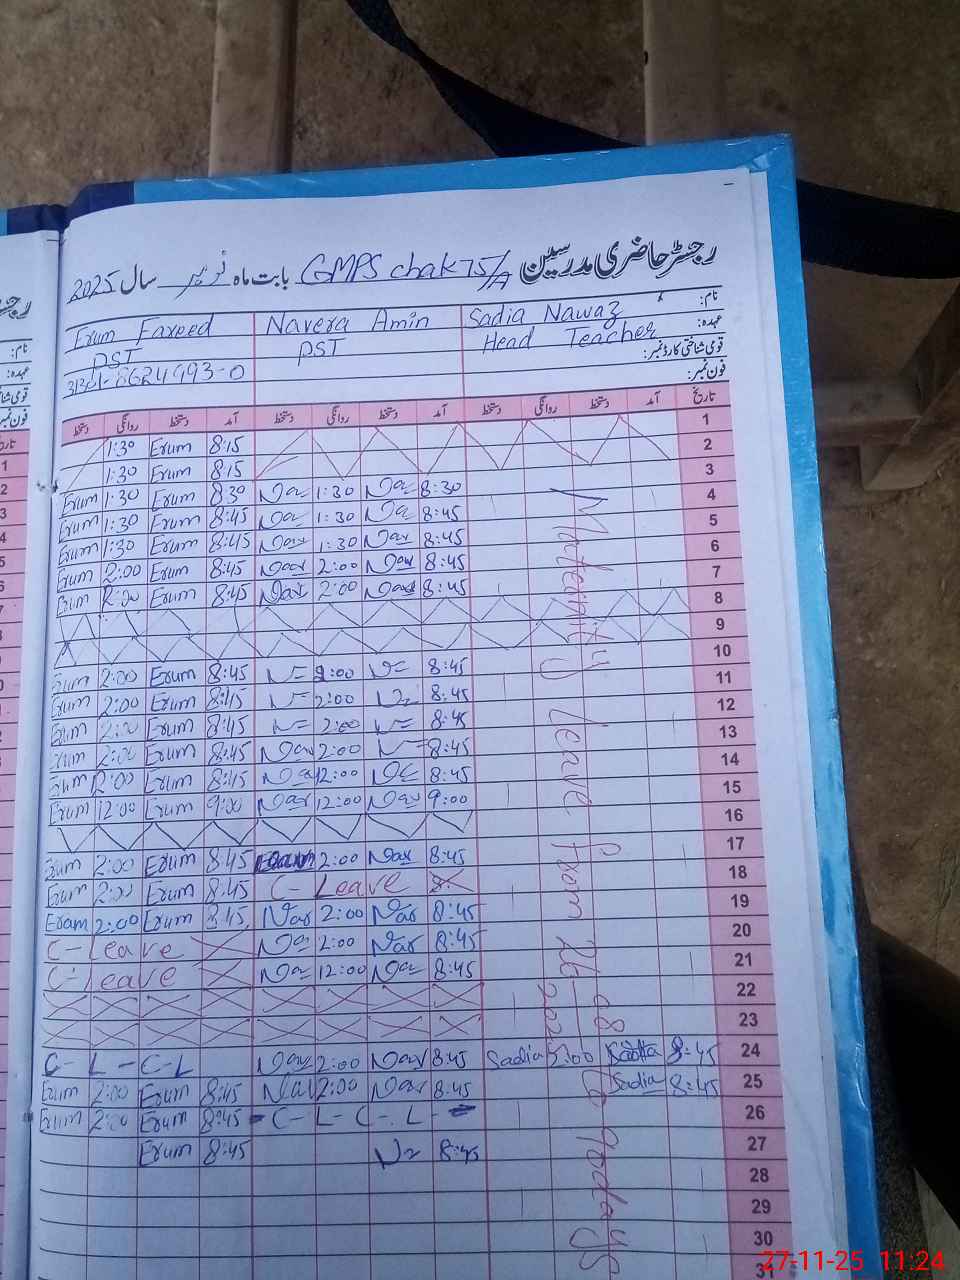 رجسٹر حاضری مدرسین GMPS chak 75/A بابت ماہ نومبر سال 2025
نام: Sadia Nawaz Navera Amin Erum Fareed
عہدہ: Head Teacher PST PST
قومی شناختی کارڈ نمبر:
فون نمبر:
تاریخ آمد دستخط روانگی دستخط آمد دستخط روانگی دستخط آمد دستخط روانگی دستخط
1
2 1:30 Erum 8:15
3 1:30 Erum 8:15
4 Erum 1:30 Erum 8:30 Na 1:30 Na 8:30
5 Erum 1:30 Erum 8:45 Na 1:30 Na 8:45
6 Erum 1:30 Erum 8:45 Nav 1:30 Nav 8:45
7 Erum 2:00 Erum 8:45 Nav 2:00 Nav 8:45
8 Erum 2:00 Erum 8:45 Nav 2:00 Nav 8:45
9
10
11 Erum 2:00 Erum 8:45 2:00 8:45
12 Erum 2:00 Erum 8:45 2:00 8:45
13 Erum 2:00 Erum 8:45 2:00 8:45
14 Erum 2:00 Erum 8:45 Nav 2:00 8:45
15 Erum 2:00 Erum 8:45 Na 12:00 8:45
16 Erum 12:00 Erum 9:00 Nav 12:00 Nav 9:00
17
18 Erum 2:00 Erum 8:45 2:00 Nav 8:45
19 Erum 2:00 Erum 8:45 C-Leave
20 Erum 2:00 Erum 8:45 Nav 2:00 Nav 8:45
21 C-Leave Na 2:00 Nav 8:45
22 C-Leave Na 12:00 Na 8:45
23
24 C-L-C-L Nav 2:00 Nav 8:45 Sadia 2:00 Sadia 8:45
25 Erum 2:00 Erum 8:45 Nav 2:00 Nav 8:45 Sadia 8:45
26 Erum 2:00 Erum 8:45 -C-L-C-L-
27 Erum 8:45 8:45
28
29
30
31
Maternity leave from 26-08-2025 to 90 days
27-11-25 11:24